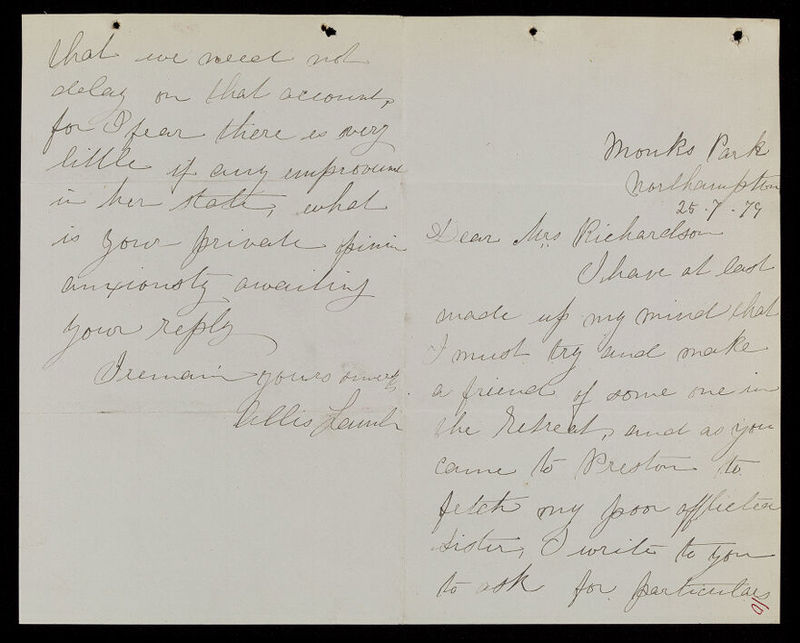 Monks Park
Northampton
25-7-79
Dear Mrs Richardson
I have at last
made up my mind that
I must try and make
a friend of some one in
the Retreat, and as you
came to Preston to
fetch my poor afflicted
sister, I write to you
to ask for particulars
that we need not
delay on that account,
for I fear there is very
little if any improvem
in her state, what
is your private opinin
anxiously awaiting
your reply
I remain yours
Allis Lamb